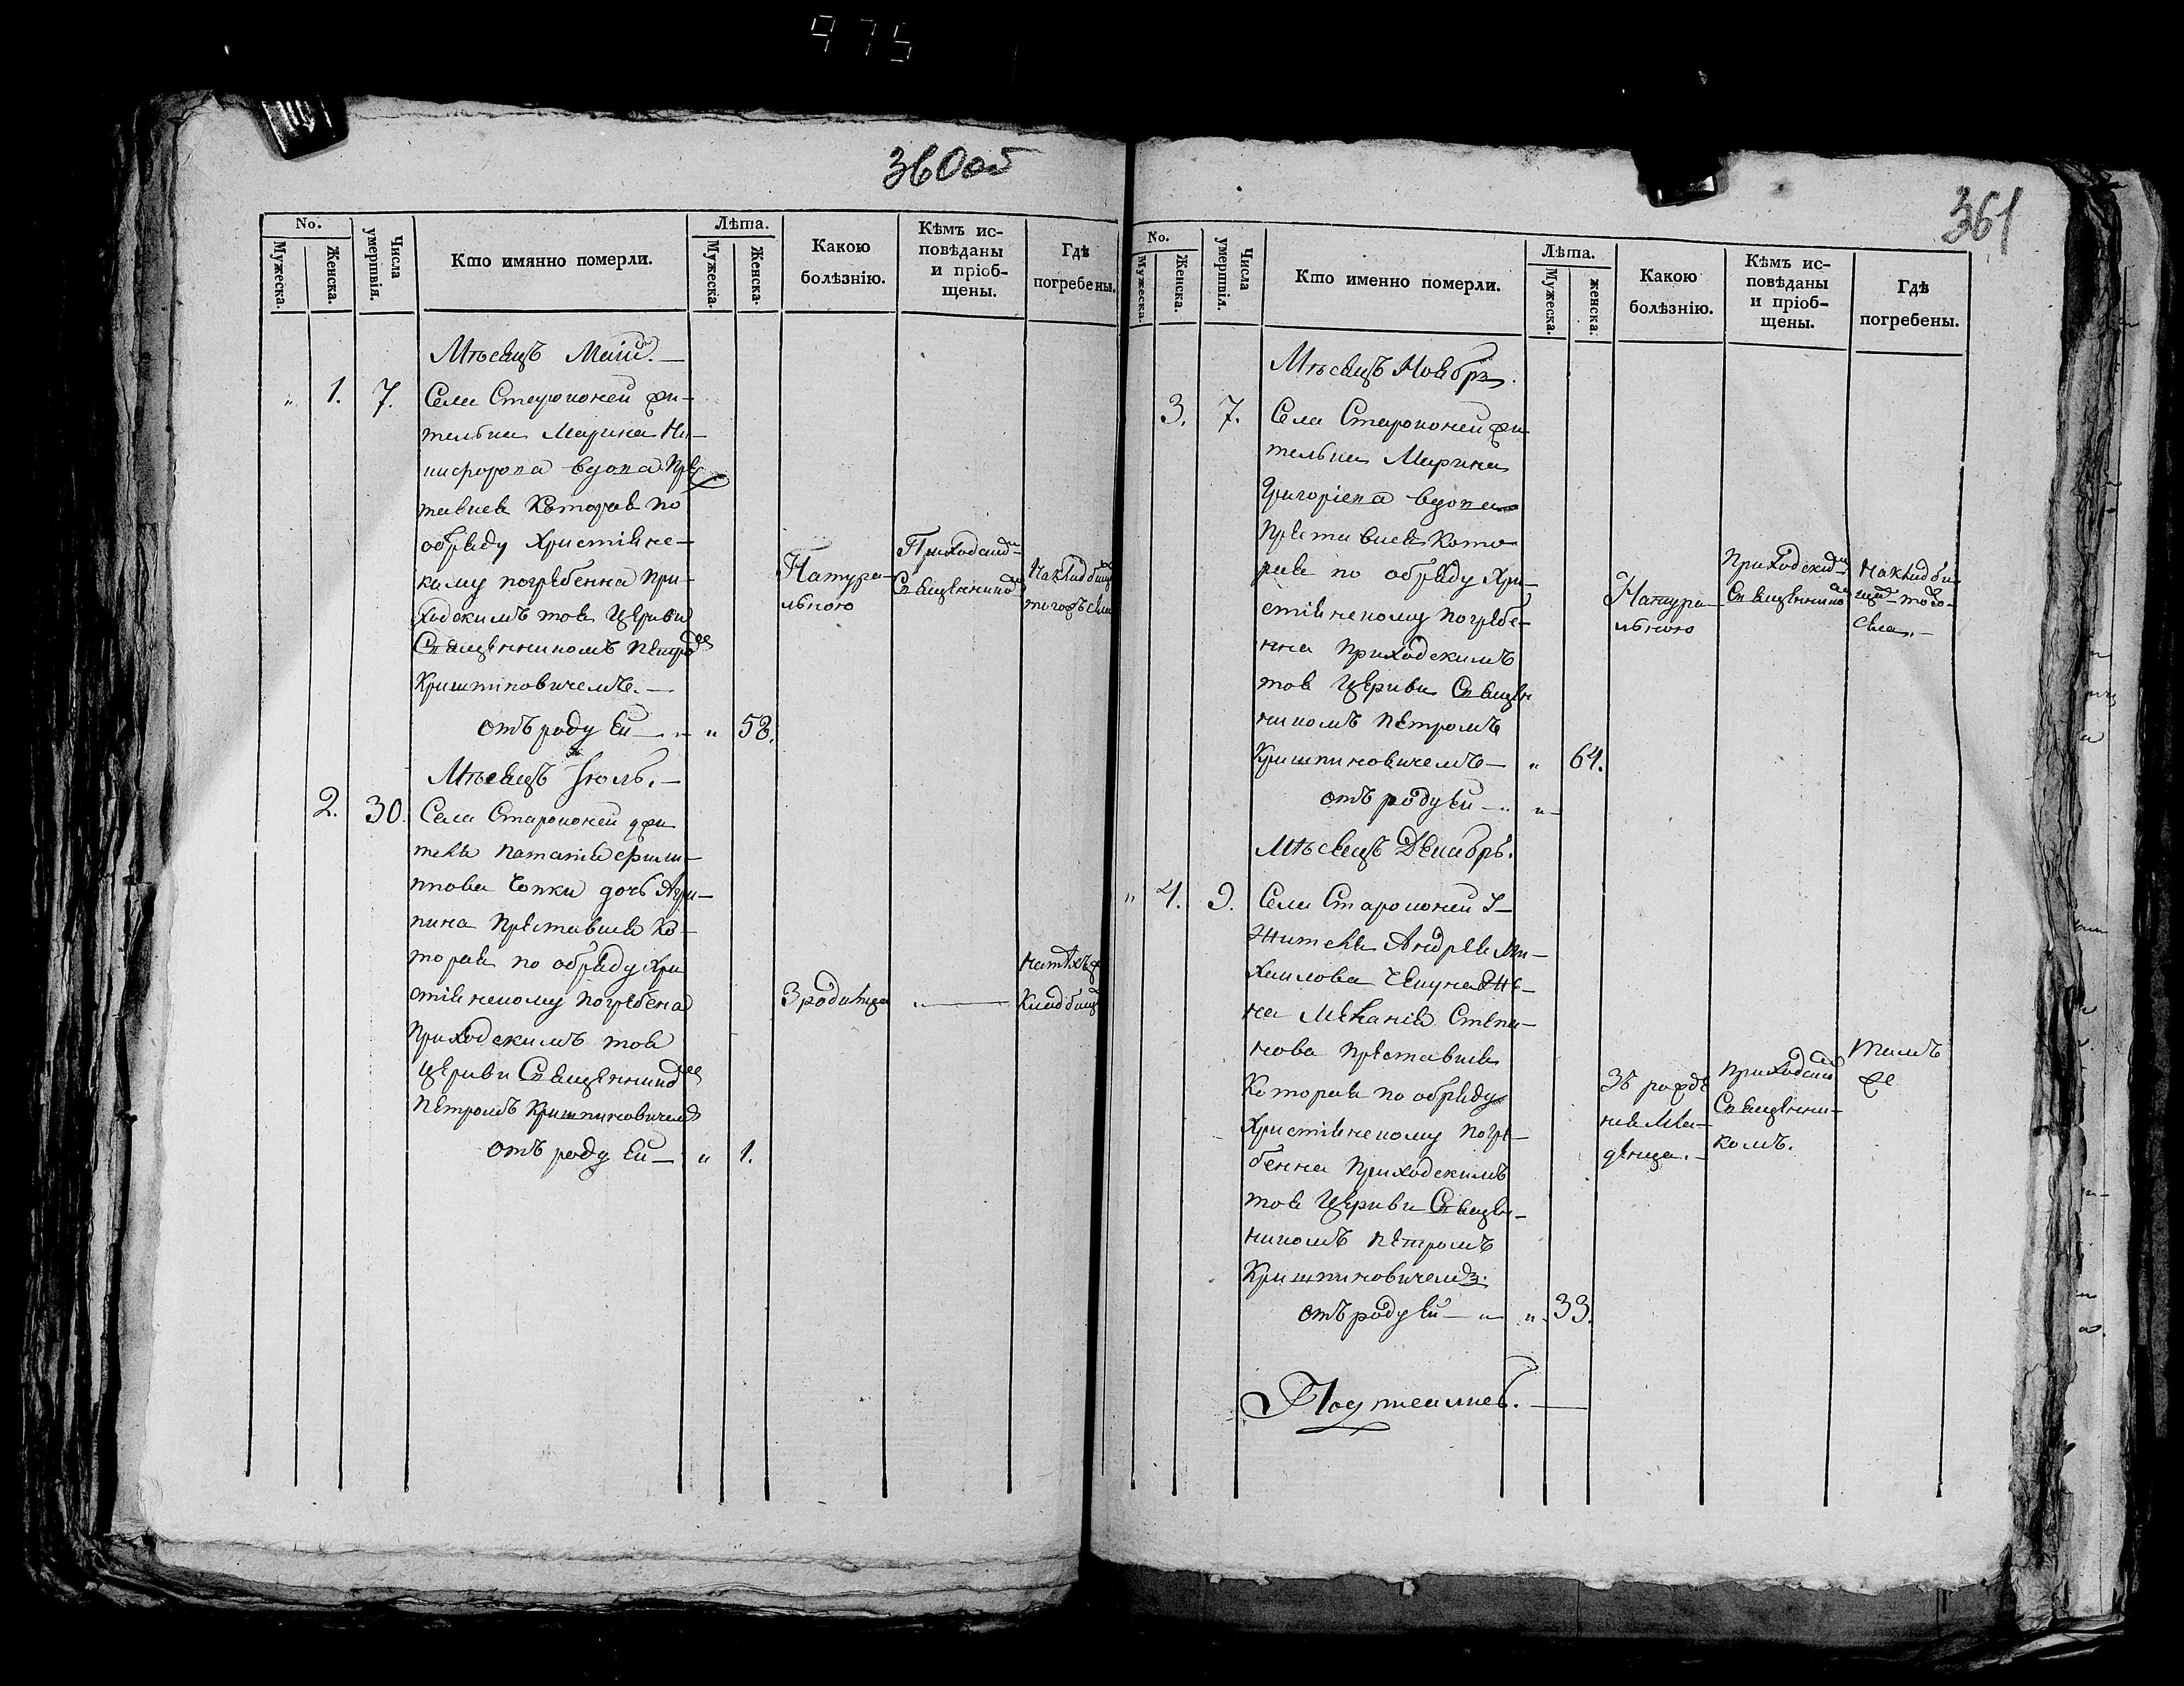 975
360об
No.
Мужеска.
Женска.
Числа умертвія.
Кто имянно померли.
Лѣта.
Мужеска.
Женска.
Какою болѣзнію.
Кѣмъ исповѣданы и пріобщены.
Гдѣ погребены.
Мѣсяцъ Маій.—
„ 1. 7. Села Староконей жи-
телька Марина Ни-
кифорова вдова Пре
тавися Которая по
обряду Христіянс-
кому погребенна При-
ходскимъ тоя Церкви
Священникомъ Петромъ
Криштиновичемъ.—
отъ роду ей — „ „ 58.
Натура-
льною
Приходским
Священником
На кладбищ
того жъ села
Мѣсяцъ Іюль.—
2. 30. Села Староконей жи
теля Потапія Филип-
пова дочь Агри-
пина Преставися Ко-
торая по обряду Хри
стіянскому Погребена
Приходскимъ тоя
Церкви Священником
Петромъ Криштиновичемъ
отъ роду ей — „ 1.
З родимца
На тѣхъ ж
Кладбищ
361
No.
Мужеска.
Женска.
Числа умертвія.
Кто именно померли.
Лѣта.
Мужеска.
женска.
Какою болѣзнію.
Кѣмъ исповѣданы и пріобщены.
Гдѣ погребены.
Мѣсяцъ Ноябрь.
3. 7. Села Староконей жи
телька Марина
Григоріева вдова
Преставися Кото
рая по обряду Хри-
стіянскому Погребе-
нна Приходскимъ
тоя Церкви Священ
никомъ Петромъ
Криштиновичемъ — „ 64.
отъ роду ей — „ „
Натура-
льною
Приходским
Священником
На кладби-
щѣ того-
села.—
Мѣсяцъ Декабрь.
„ 4. 9. Села Староконей
Жителя Андрея Ми-
хайлова Же-
на Меланія Степа-
нова Преставися
Которая по обряду
Христіянскому Погре-
бенна Приходскимъ
тоя Церкви Священ-
никомъ Петромъ
Криштиновичемъ.
отъ роду ей — „ „ 33.
Зъ рожде
нія Мла-
денца.—
Приходским
Священни-
комъ.
Тамъ
же